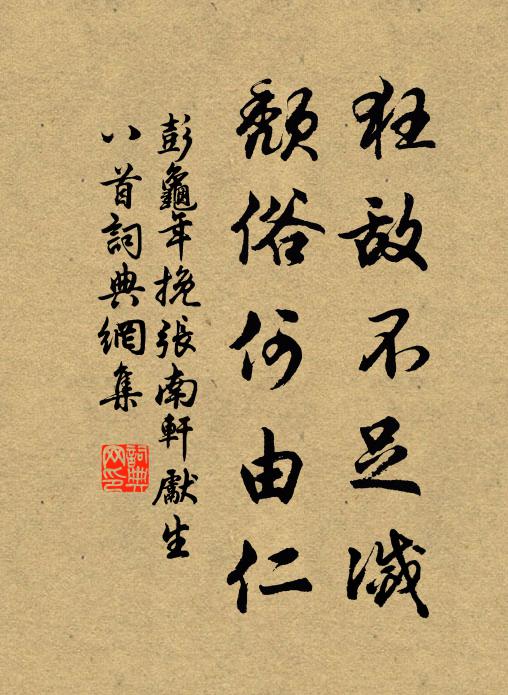 狂敌不足滅
頹俗何由仁
彭龜年挽張南軒獻生
八首詞典網集
詞典網印